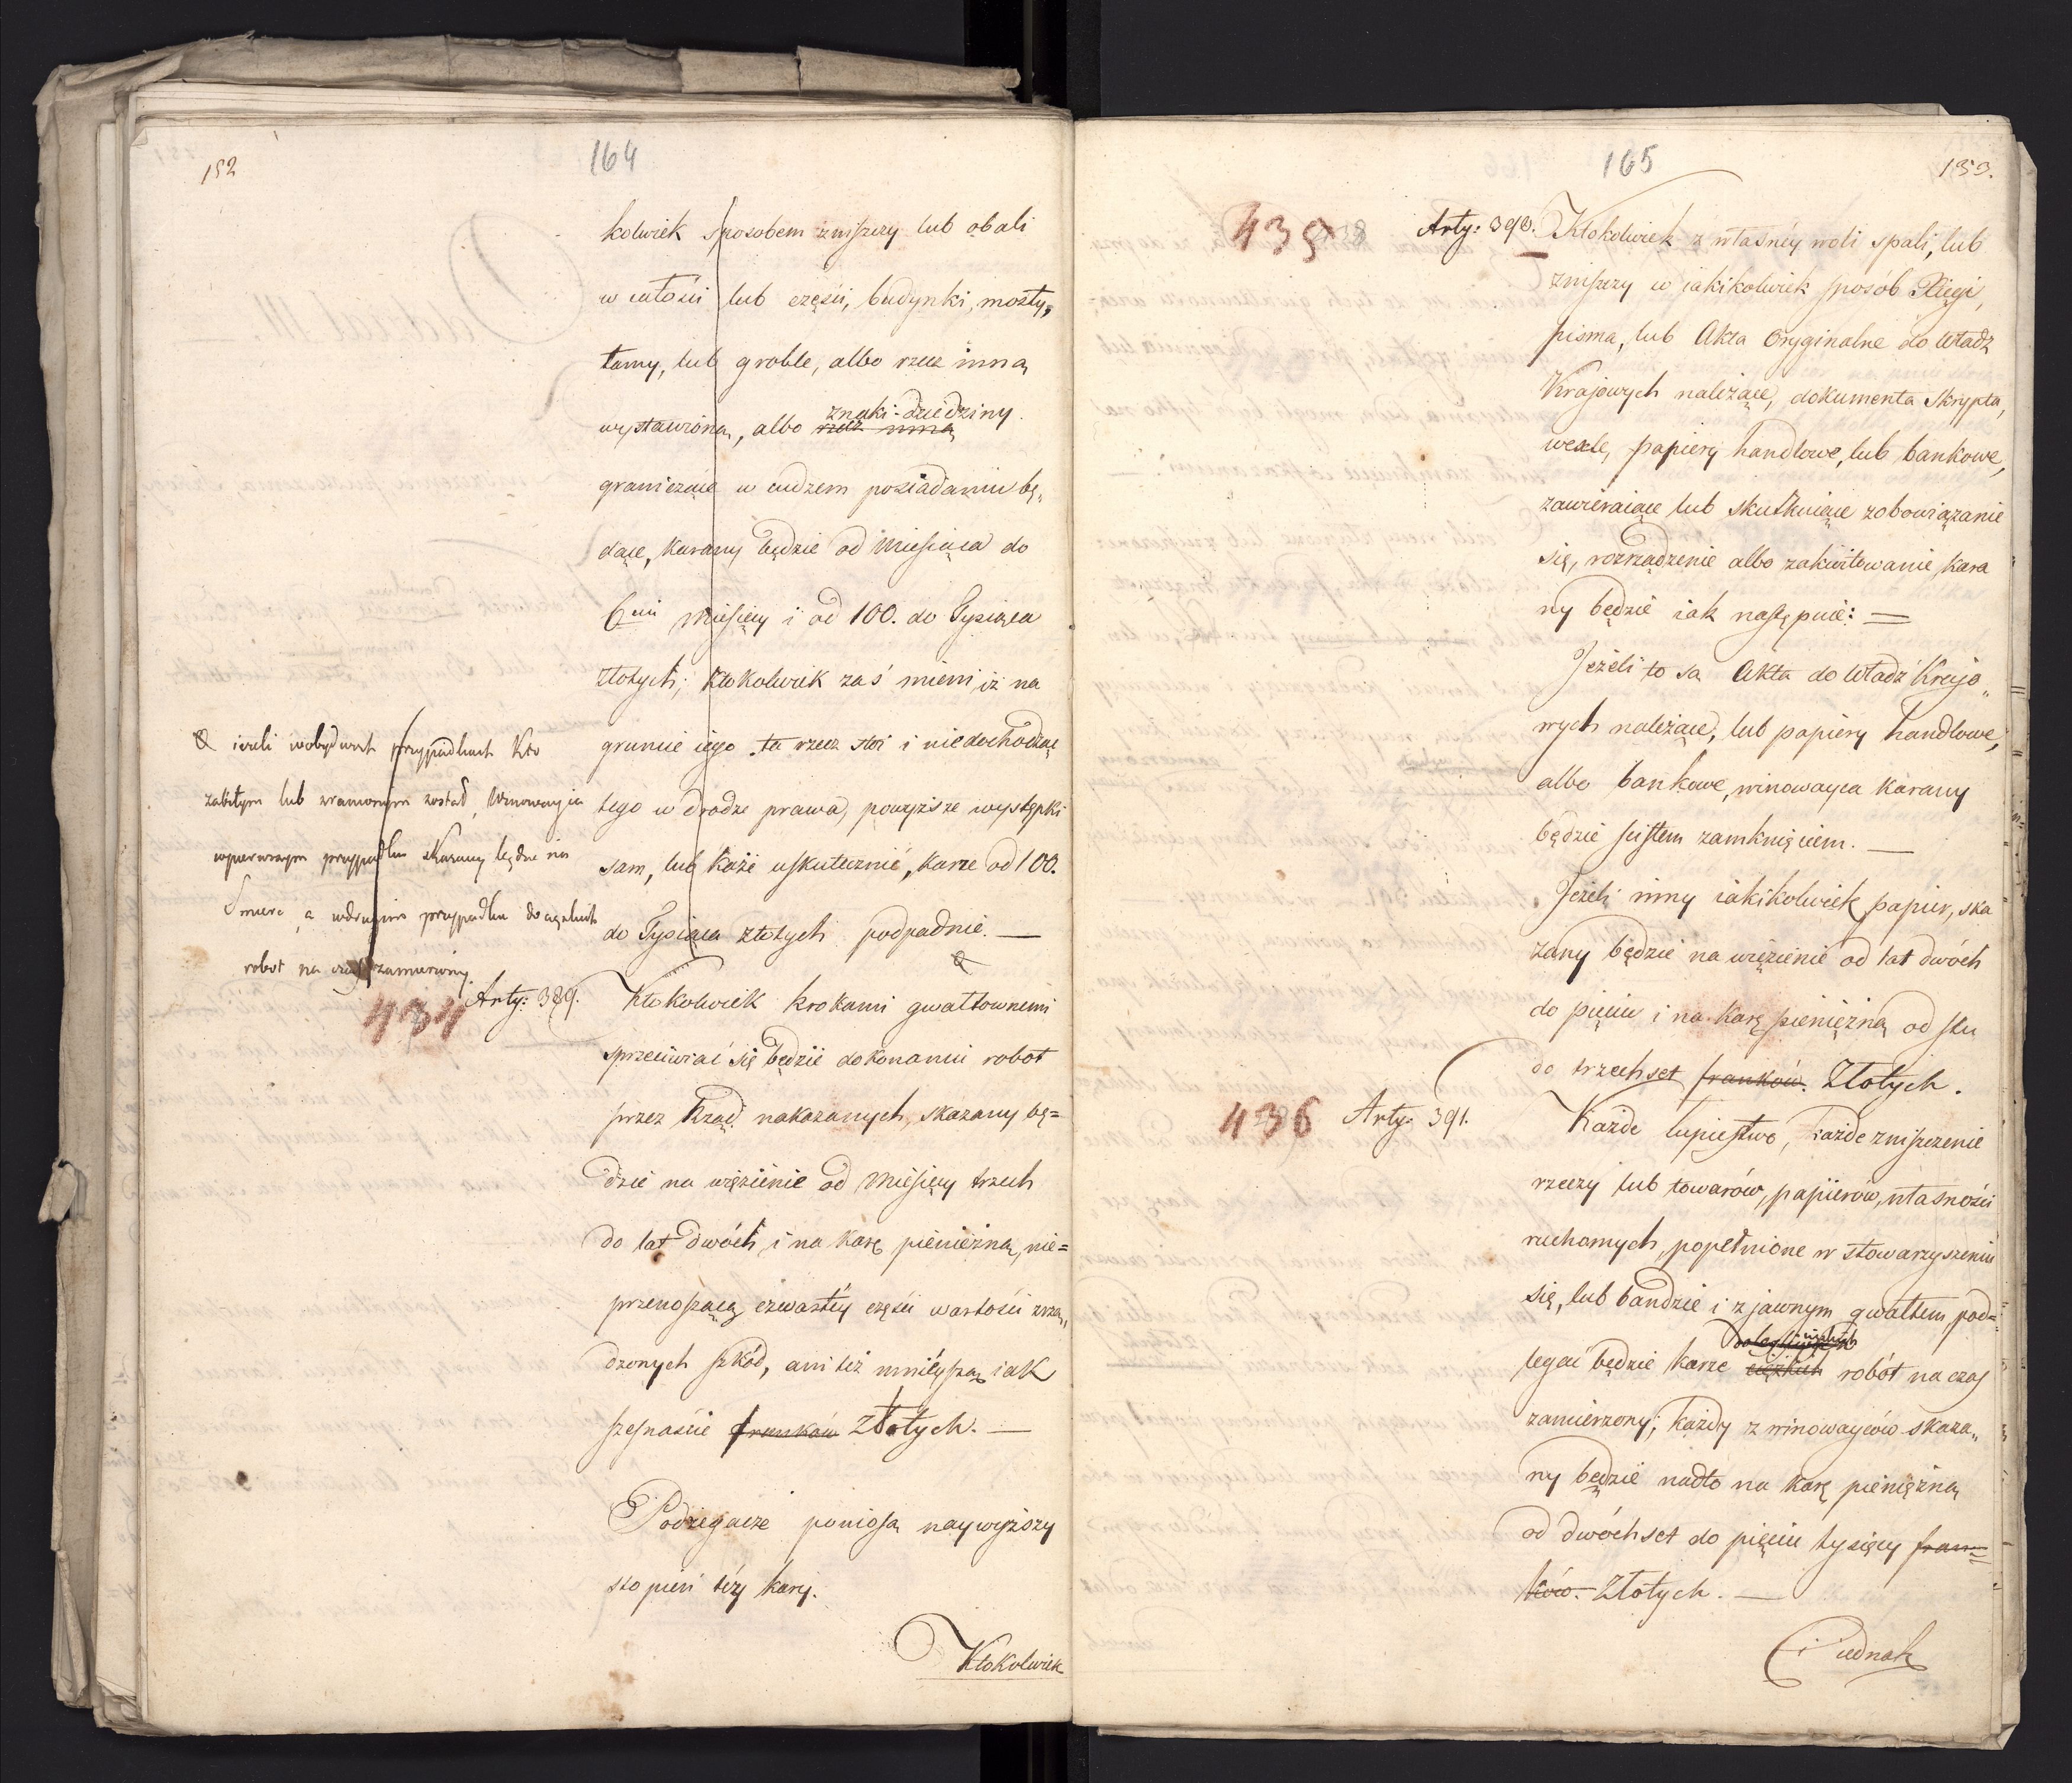 152
164
kolwiek sposobem zniszczy lub obali
w całości lub części, budynki, mosty,
tamy, lub groble, albo rzecz inną
znaki dziedziny
wystawioną, albo rzecz inną
graniczące w cudzem posiadaniu bę„
dące, karany będzie od Miesiąca do
6ciu Miesięcy i od 100. do Tysiąca
złotych; Ktokolwiek zaś mieni, iż na
gruncie iego ta rzecz stoi i niedochodząc
tego w drodze prawa, powyższe występki
sam, lub każe uskutecznić, karze od 100.
do Tysiąca złotych podpadnie. —
ieżeli wobydwuch przypadkach Kto
zabitym lub zranionym został, Winowayca
wpierwszym przypadku skazany będzie na
Smierć, a wdrugim przypadku do ciężkich
robot na czas zamierzony.
434 Arty: 389.
Ktokolwiek krokami gwałtownemi
sprzeciwiać się będzie dokonaniu robot
przez Rząd nakazanych, skazany bę=
dzie na więzienie od Miesięcy trzech
do lat dwóch i na karę pieniężną, nie=
przenoszącą czwartéy części wartości zrzą„
dzonych szkód, ani téż mniéyszą iak
szesnaście franków Złotych. —
Podżegacze poniosą naywyższy
stopień téy kary.
Ktokolwiek
165
153.
435 Arty: 390. Ktokolwiek z własnéy woli spali, lub
zniszczy w iakikolwiek sposób Xięgi,
pisma, lub Akta Oryginalne do Władz
Krajowych należące, dokumenta Skrypta,
wexle, papiery handlowe, lub bankowe,
zawieraiące lub skutkuiące zobowiązanie
się, rozrządzenie albo zakwitowanie, kara
ny będzie iak następuie: =
Jeżeli to są Akta do Władz Krajo„
wych należące, lub papiery handlowe,
albo bankowe, winowayca karany
będzie scisłem zamknięciem. —
Jeżeli inny iakikolwiek papier, ska
zany będzie na więzienie od lat dwóch
do pięciu i na karę pieniężną od stu
do trzechset franków. Złotych.
436 Arty: 391.
Każde łupiestwo, każde zniszczenie
rzeczy lub towarów, papierów, własności
ruchomych, popełnione w stowarzyszeniu
się, lub bandzie i z jawnym gwałtem, pod=
legać będzie karze ciężkich robót na czas
zamierzony; każdy z winowayców skaza„
ny będzie nadto na karę pieniężną
od dwóchset do pięciu tysięcy fran=
ków. Złotych. —
iednak